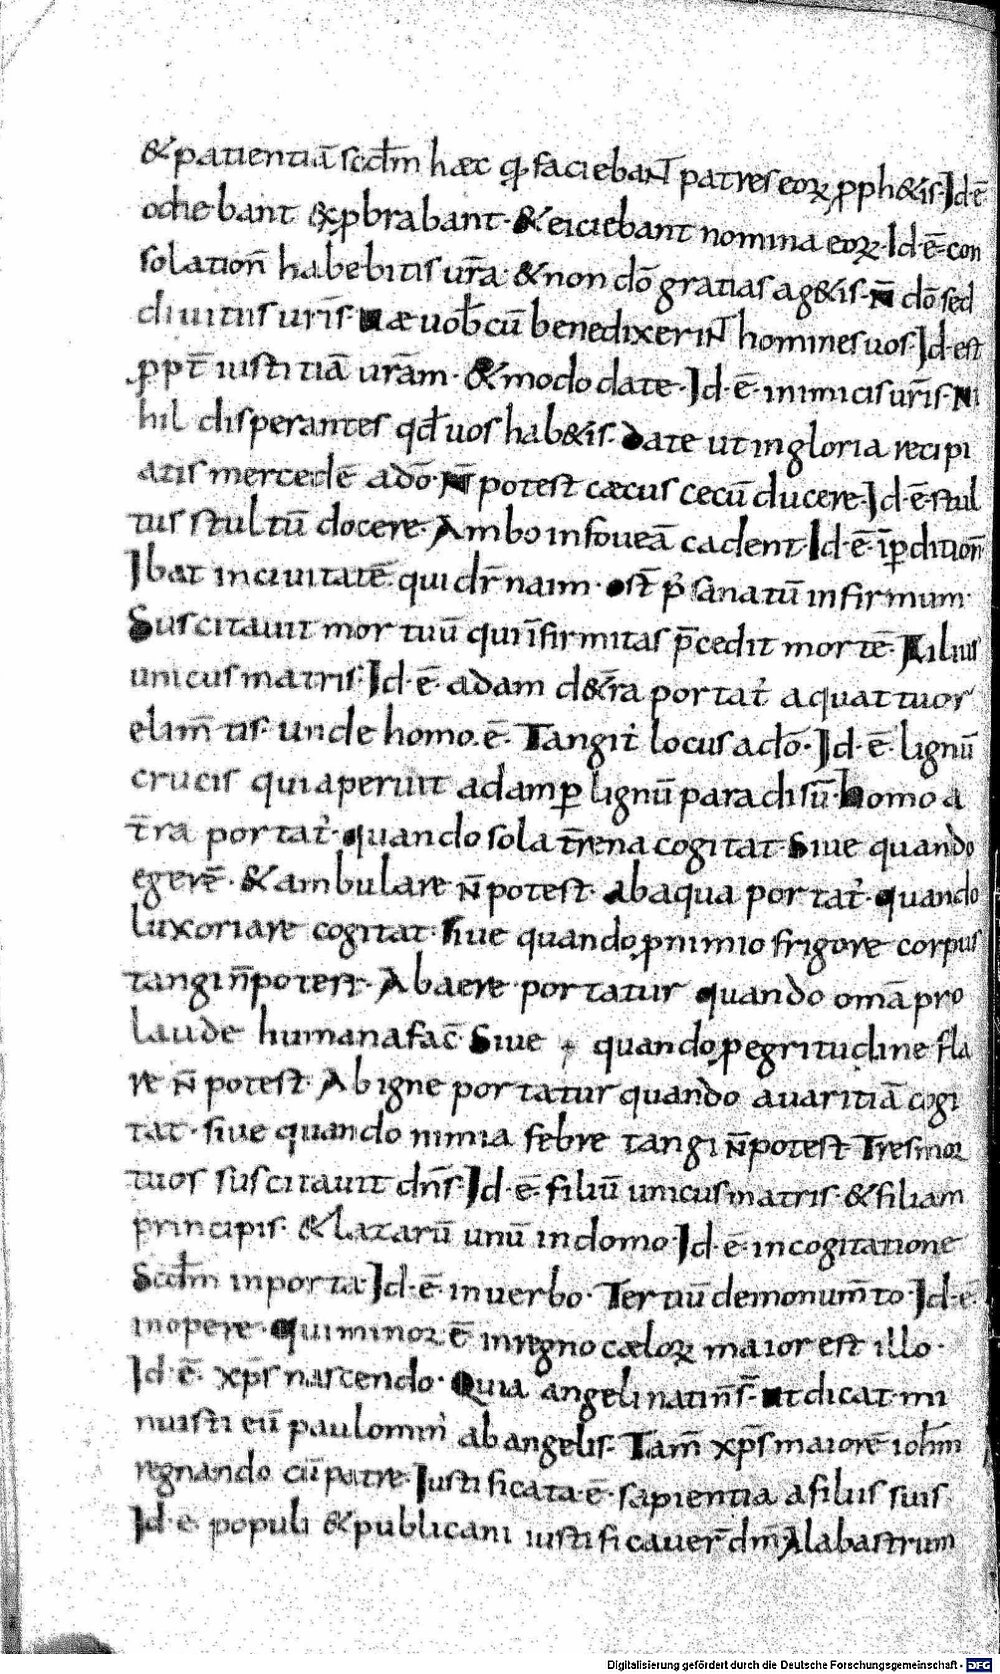 &patientiā scdm̄ hæc q; faciebant patres eoꝝ ꝓph&is· Id·ē
odie bant &exꝓbrabant· &eiciebant nomina eoꝝ· Id·ē· con
solation̄ habebitis ur̄a· &non dō gratias ag&is· N̄ dō sed
diuitiis ur̄is· Uæ uob̄ cū benedixerint homines uos· Id·est
ꝓpt̄ iustitiā ur̄am· &modo date· Id·ē· inimicis ur̄is· Ni
hil disperantes qd̄ uos hab&is· Date ut in gloria recipi
atis mercedē adō· N̄ potest cæcus cecū ducere· Id·ē· stul
tus stultū docere· Ambo in foueā cadent· Id·ē· iꝑdition̄
Ibat in ciuitatē qui dr̄ naim· ost̄ p̄ sanatū infirmum·
Suscitauit mortuū qui īfirmitas p̄cedit mortē· Filius
unicus matris· Id·ē· adam d&r̄ra portat̉ aquattuor
elim̄tis· unde homo·ē· Tangit̉ locus adō· Id·ē· lignū
crucis qui aperuit adam ꝑ lignū paradisū· homo a
t̄ra portat̉· quando sola t̄rena cogitat· Siue quando
egerē· &ambulare n̄ potest· abaqua portat̉· quando
luxoriare cogitat· siue quando ꝓ nimio frigore corpus
tangi n̄ potest· Abaere portatur quando omā pro
laude humana fac̄· Siue quando ꝑ egritudine fla
re n̄ potest· Abigne portatur quando auaritiā cogi
tat· siue quando nimia febre tangi n̄ potest Tres moꝛ
tuos suscitauit dn̄s· Id·ē· filiū unicus matris· &filiam
principis· &lazarū unū indomo· Id·ē· incogitatione
Scdm̄ inporta· Id·ē· inuerbo· Tertiū demonum̄to· Id·ē·
inopere· Qui minoꝛ ē inregno cæloꝝ maior est illo·
Id·ē· xp̄s nascendo· Quia angeli nati n̄ s̄· ut dicat· mi
nuisti eū paulomin̉ ab angelis· Tam̄ xp̄s maiorē ioh̄m
regnando cū patre· Iustificata·ē· sapientia a filiis suis·
Id·e· populi &publicani iustificauer̄ dm̄ Alabastrum
Digitalisierung gefördert durch die Deutsche Forschungsgemeinschaft - DFG